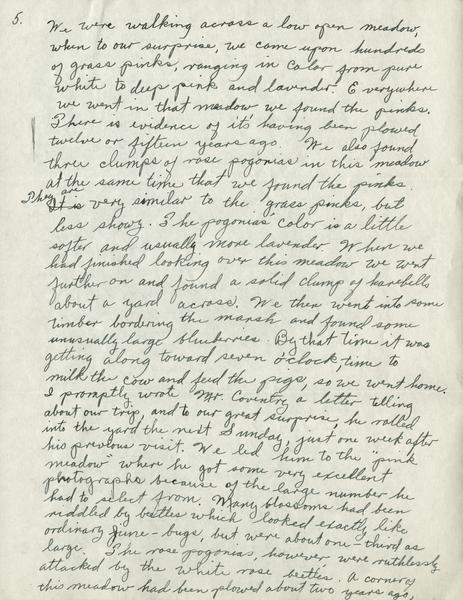 5.
We were walking across a low open meadow,
when to our surprise, we came upon hundreds
of grass pinks, ranging in color from pure
white to deep pink and lavender. Everywhere
we went in that meadow we found the pinks.
There is evidence of it's having been plowed
twelve or fifteen years ago. We also found
three clumps of rose pogonias in this meadow
at the same time that we found the pinks.
They are
It is very similar to the grass pinks, but
less showy. The pogonias' color is a little
softer and usually more lavender. When we
had finished looking over this meadow we went
further on and found a solid clump of harebells
about a yard across. We then went into some
timber bordering the marsh and found some
unusually large blueberries. By that time it was
getting along toward seven o'clock, time to
milk the cow and feed the pigs, so we went home.
I promptly wrote Mr. Coventry a letter telling
about our trip, and to our great surprise, he rolled
into the yard the next Sunday, just one week after
his previous visit. We led him to the "pink
meadow" where he got some very excellent
photographs because of the large number he
had to select from. Many blossoms had been
riddled by beetles which looked exactly like
ordinary June-bugs, but were about one-third as
large. The rose pogonias, however, were ruthlessly
attacked by the white rose beetles. A corner of
this meadow had been plowed about two years ago,